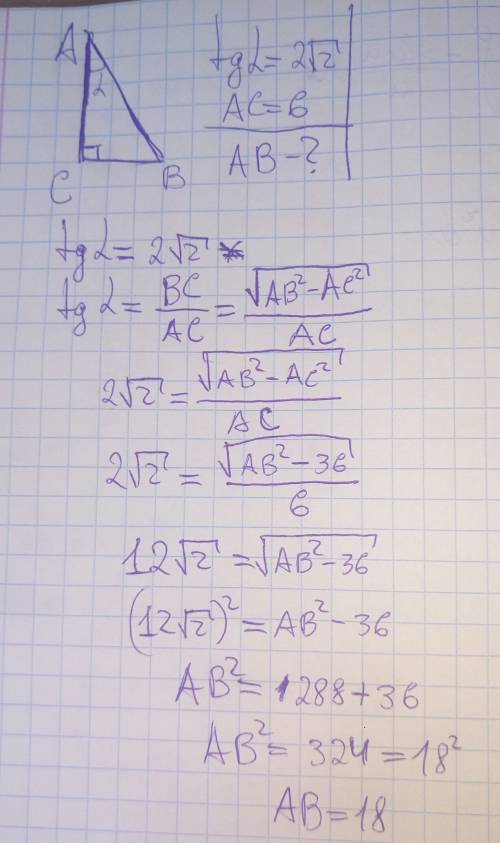 A
α
C
B
tg α = 2√2
AC = 6
AB - ?
tg α = 2√2
tg α = BC/AC = √(AB² - AC²)/AC
2√2 = √(AB² - AC²)/AC
2√2 = √(AB² - 36)/6
12√2 = √(AB² - 36)
(12√2)² = AB² - 36
AB² = 288 + 36
AB² = 324 = 18²
AB = 18